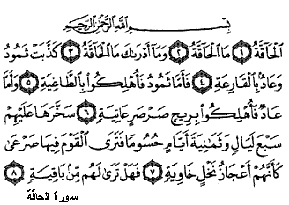 بِسْمِ اللَّهِ الرَّحْمَٰنِ الرَّحِيمِ
الْحَاقَّةُ ١ مَا الْحَاقَّةُ ٢ وَمَا أَدْرَاكَ مَا الْحَاقَّةُ ٣ كَذَّبَتْ ثَمُودُ
وَعَادٌ بِالْقَارِعَةِ ٤ فَأَمَّا ثَمُودُ فَأُهْلِكُوا بِالطَّاغِيَةِ ٥ وَأَمَّا
عَادٌ فَأُهْلِكُوا بِرِيحٍ صَرْصَرٍ عَاتِيَةٍ ٦ سَخَّرَهَا عَلَيْهِمْ
سَبْعَ لَيَالٍ وَثَمَانِيَةَ أَيَّامٍ حُسُومًا فَتَرَى الْقَوْمَ فِيهَا صَرْعَىٰ
كَأَنَّهُمْ أَعْجَازُ نَخْلٍ خَاوِيَةٍ ٧ فَهَلْ تَرَىٰ لَهُم مِّن بَاقِيَةٍ ٨
سورة الحاقة